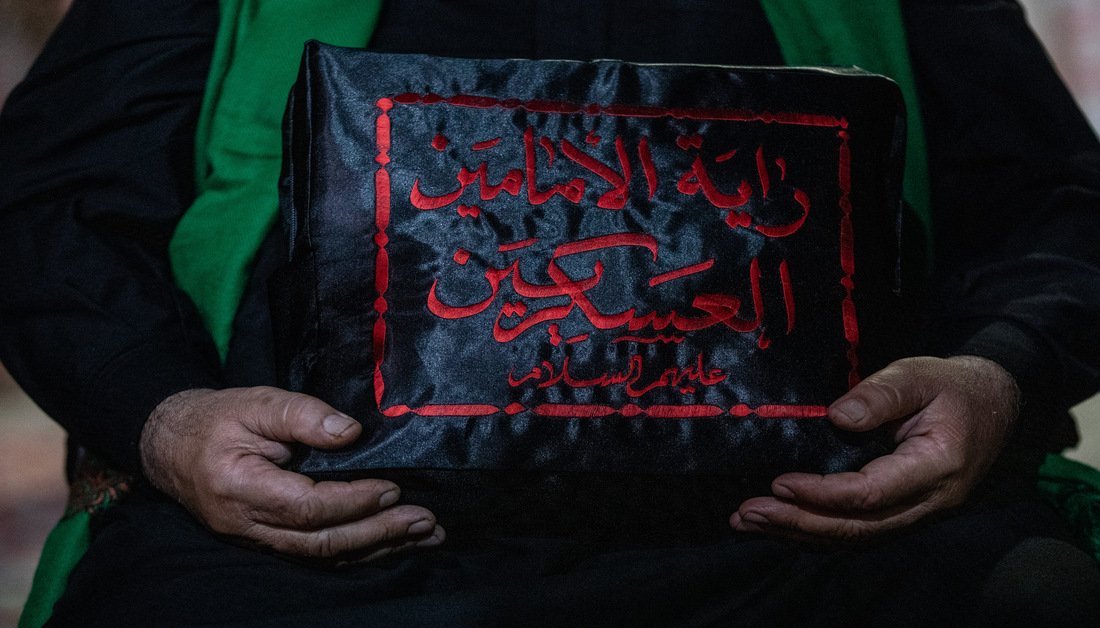 راية الإمامين
العسكريين
عليهم السلام